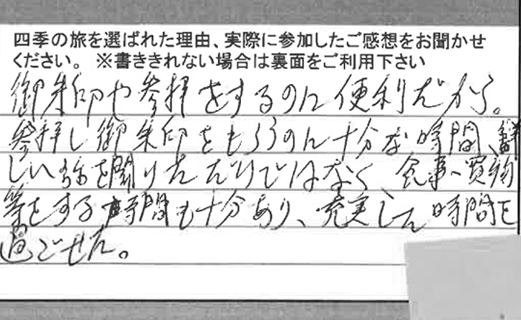 四季の旅を選ばれた理由、実際に参加したご感想をお聞かせ
ください。 ※書ききれない場合は裏面をご利用下さい
御朱印や参拝をするのに便利だから。
参拝し御朱印をもらうのに十分な時間、詳
しい話を聞けただけではなく、食事、買物
等をする時間も十分あり、充実した時間を
過ごせた。